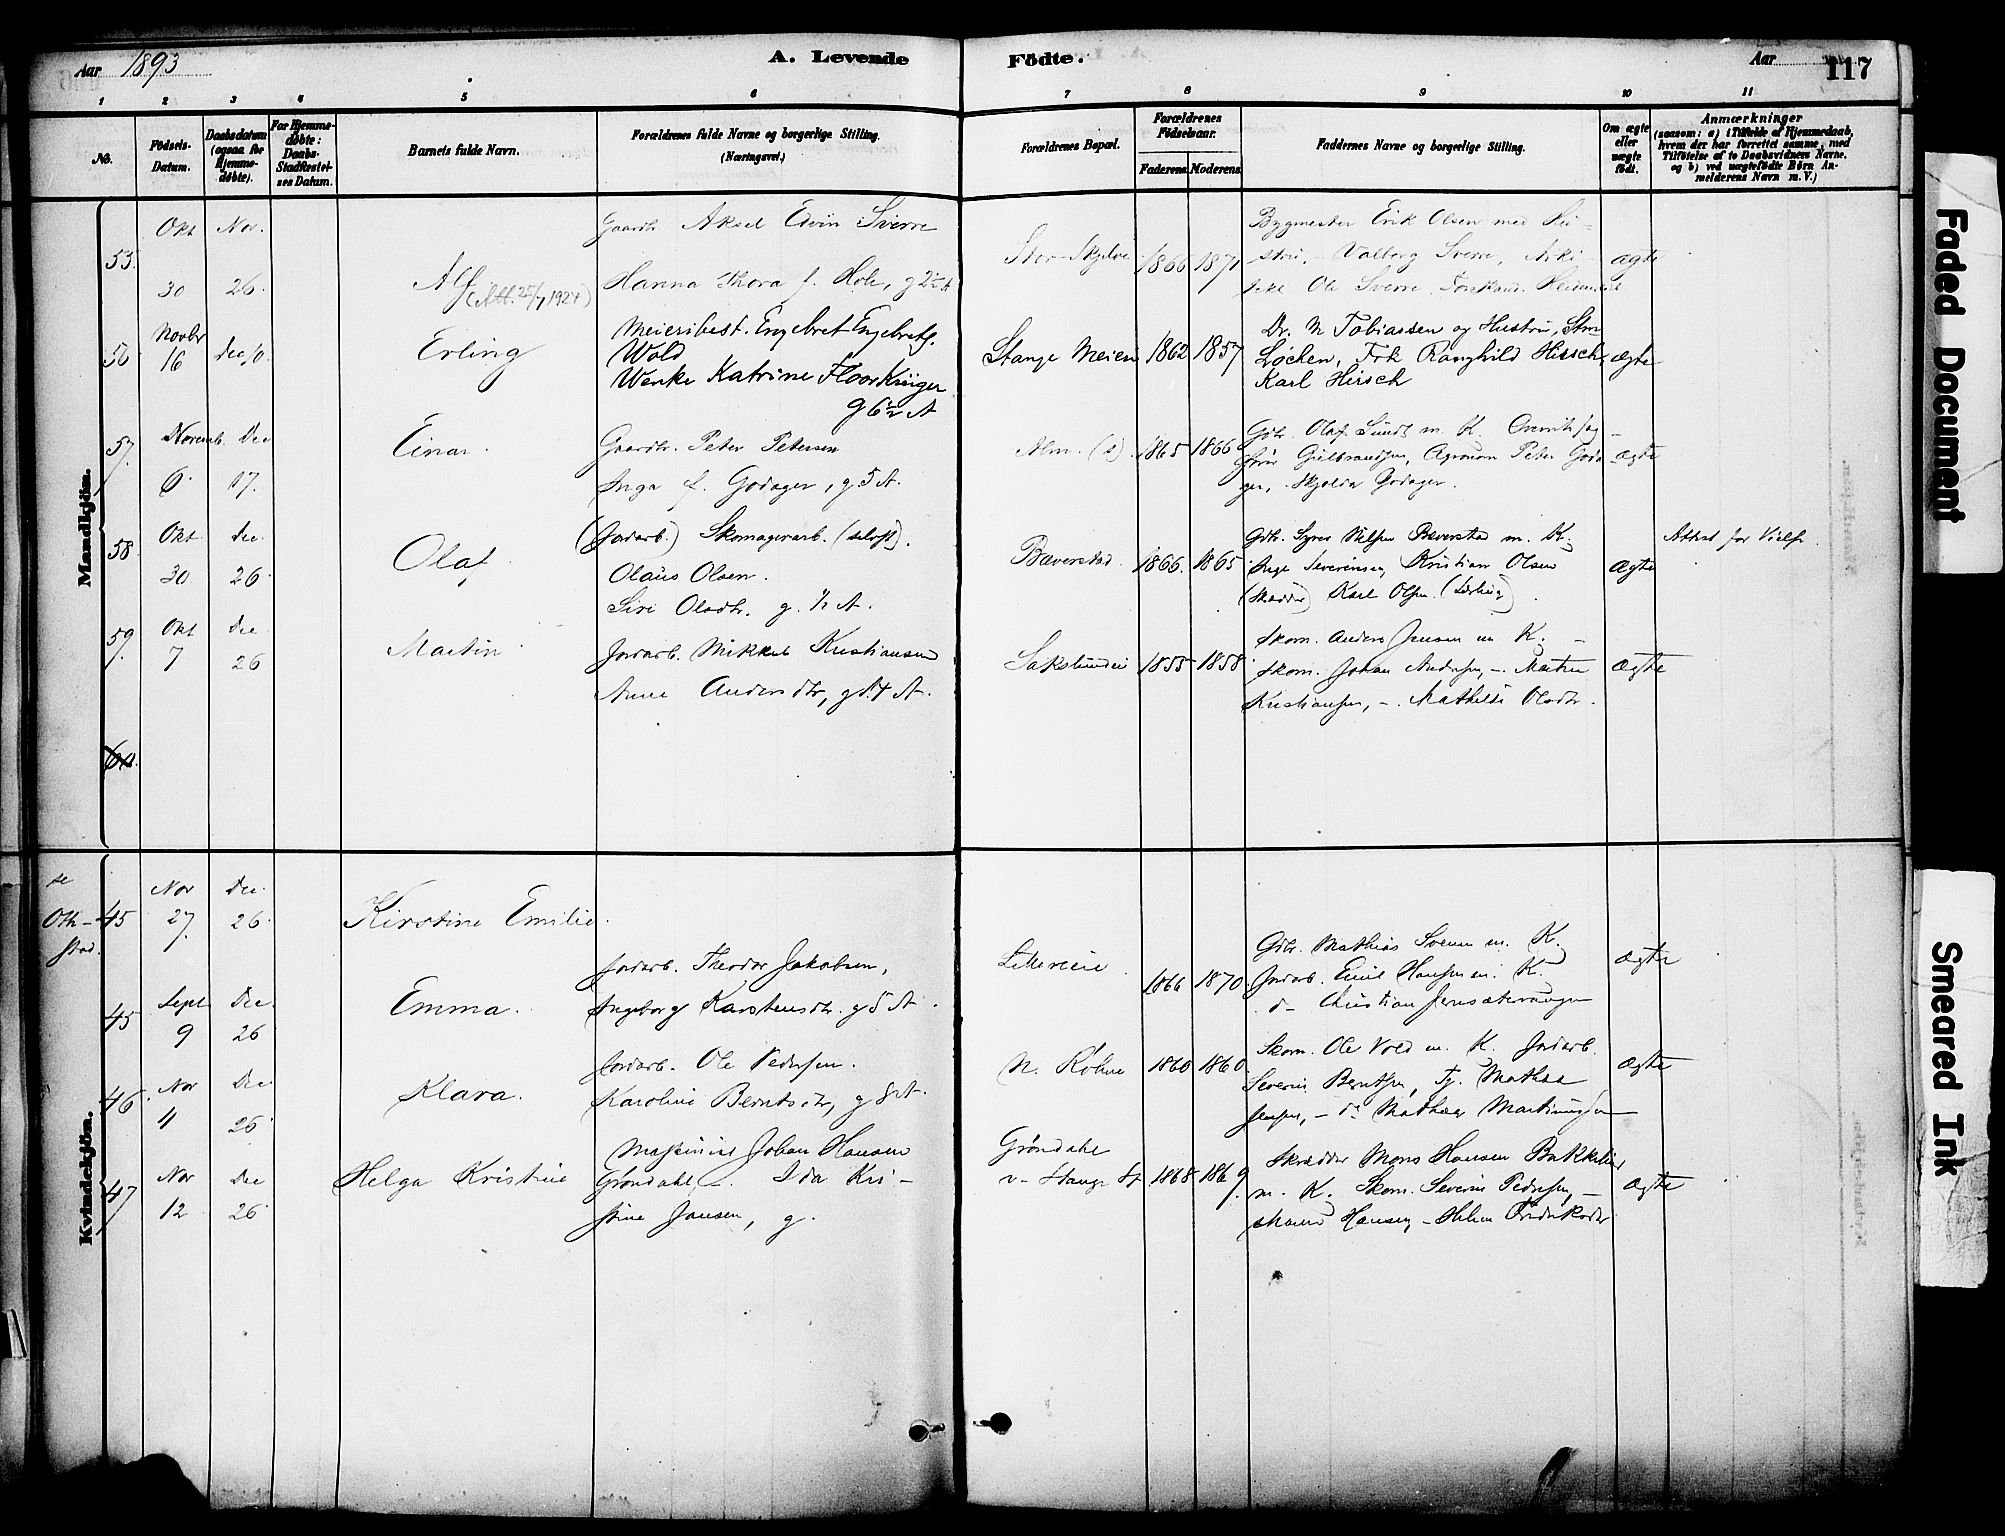 Aar 1893
A. Levende
Födte.
Aar
117
1 2 3 4 5 6 7 8 9 10 11
No.
Födsels-
Datum.
Daabsdatum
(ogsaa for
Hjemme-
döbte).
For Hjemme-
döbte:
Daabs-
Stadfæstel-
ses Datum.
Barnets fulde Navn.
Forældrenes fulde Navne og borgerlige Stilling.
(Næringsvei.)
Forældrenes Bopæl.
Forældrenes
Födselsaar.
Faderens. Moderens.
Faddernes Navne og borgerlige Stilling.
Om ægte
eller
uægte
födt.
Anmærkninger
(saasom: a) i Tilfælde af Hjemmedaab,
hvem der har forrettet samme, med
Tilföielse af to Daabsvidners Navne,
og b) ved uægtefödte Börn An-
melderens Navn m.V.)
Mandkjön.
55.
Okt
30
Nov.
26.
Alf
(Att. 25/7 1924)
Gaardbr. Aksel Edvin Sverre
Hanna Thora f. Hole, g 2 1/2 A
Stor-Skjelve
1866 1871
Bygmester Erik Olsen med Hu-
stru, - Valborg Sverre, Arki-
tekt Ole Sverre,
ægte
56
Novbr
16
Dec 10.
Erling
Meieribest. Engebret Engebrets.
Wold
Wenke Katrine Floor Krüger
g 6 1/2 A
Stange Meieri
1862 1857
Dr. M Tobiassen og Hustru, Stm
Løchen, Frk Ranghild Hirsch,
Karl Hirsch
ægte
57.
Novemb.
6.
Dec
17.
Einar.
Gaardbr. Peter Petersen
Inga f. Godager, g. 5 A.
Alm. (s).
1865 1866
Gdbr. Olaf Sundt m. K. Overretssag-
fører Gulbrandsen, Agronom Peter Goda-
ger, Skjolda Godager.
ægte
58
Okt
30
Dec.
26.
Olaf
(Jordarb.) Skomagerarb. (selvst).
Olaus Olsen.
Siri Olsdtr. g. 1/2 A.
Bæverstad
1866. 1865
Gdbr. Syver Nilsen Bæverstad m. K.
Inge Severinsen, Kristian Olsen
Karl Olsen. (Lærling)
ægte
Attest for Vielse
59.
Okt
7
Dec.
26
Martin
Jordarb. Mikkel Kristiansen
Anne Andersdtr, g 14 A.
Sakslundeie
1855 1858
Skom. Anders Jensen m K. -
Skom. Johan Andersen, -. Martin
Kristiansen, -. Mathilde Olsdtr.
ægte
60.
Kvindekjön.
se
Oth-
stad.
45
Nov
27
Dec.
26.
Kirstine Emilie.
45
Sept
9
Dec.
26
Emma.
Jordarb. Theodor Jakobsen,
Ingeborg Karstensdtr. g 5 A.
Lillereeie
1866 1870
Gdbr. Mathias Svenn m. K.
Jordarb. Emil Hansen m. K.
do Christian Jensæterangen
ægte
46.
Nov
4
Dec
26
Klara.
Jordarb. Ole Pedersen.
Karoline Berntsdtr, g 8 A.
N. Røhne
1860 1860
Skom. Ole Vold m. K. Jordarb.
Severin Berntsen, Tj. Mathea
Jensen, - do Mathæa Martinusen
ægte
47
Nov
12
Dec
26
Helga Kristine
Maskinist Johan Hansen
Grøndahl -. Ida Kri-
stine Jansen, g.
Grøndahl
v- Stange St
1868 1869.
Skrædder Mons Hansen Bakkelien
m. K. Skom. Severin Pedersen, -
Hansen, - Helene Frederiksdtr
ægte
Faded Document
Smeared Ink